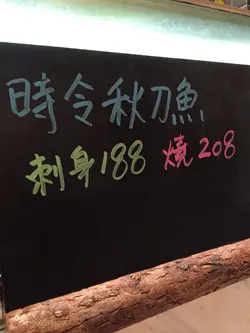 時令秋刀魚
刺身188 燒208